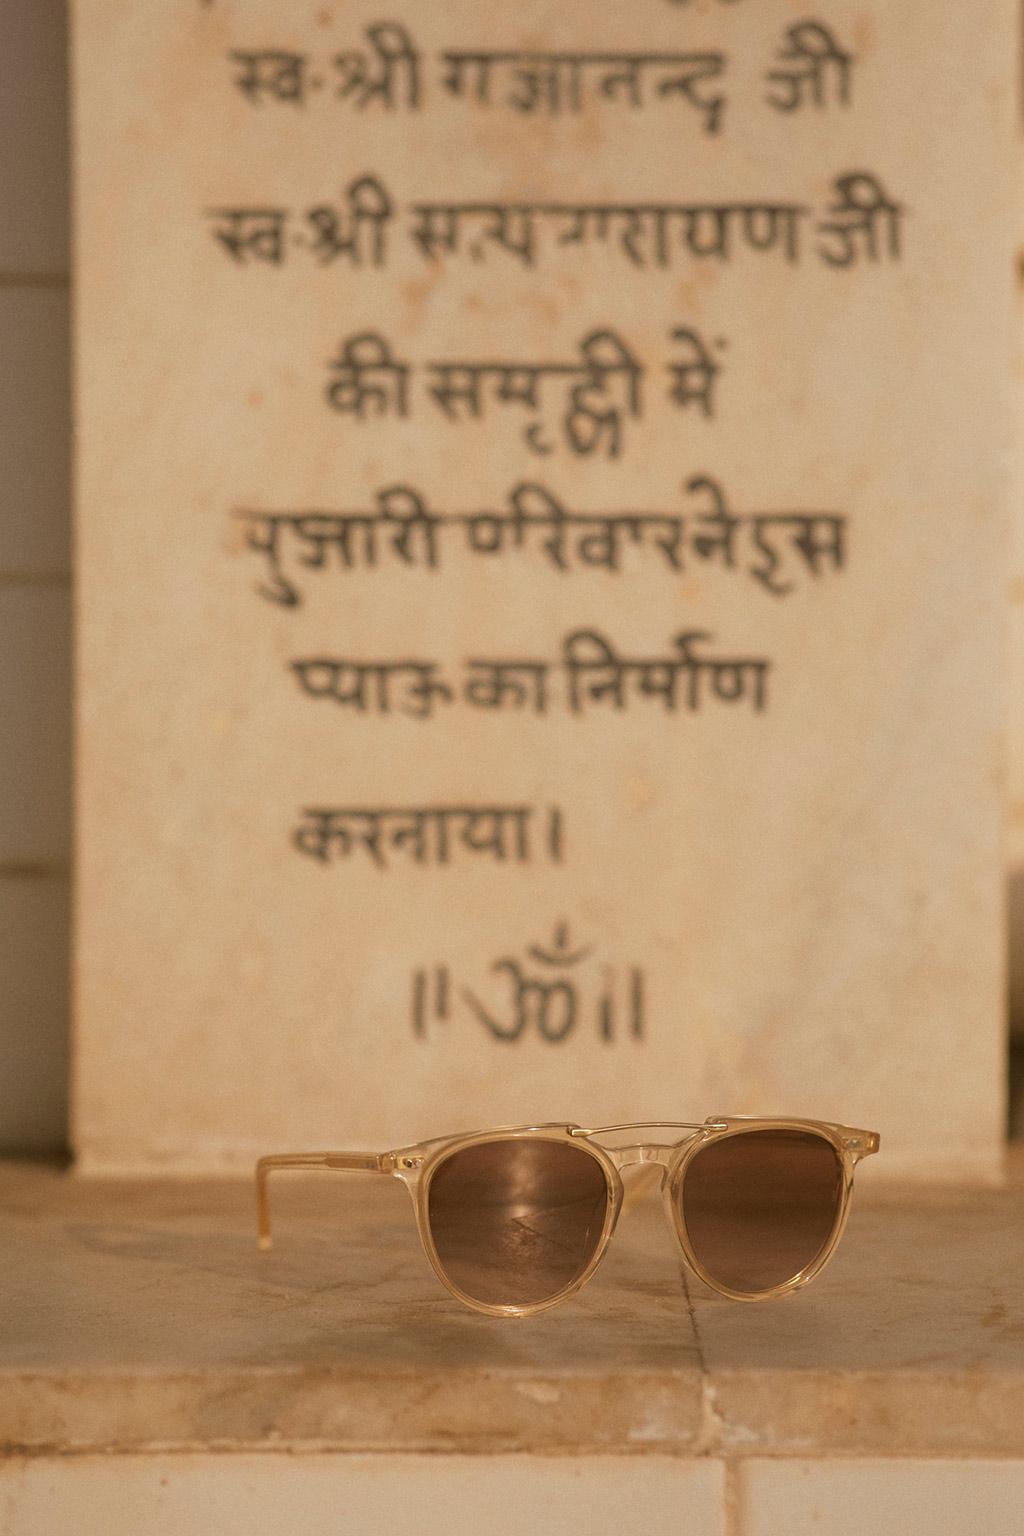 स्व. श्री गजानन्द जी
स्व. श्री सत्यनारायण जी
की समृद्धी में
पुजारी परिवार ने इस
प्याऊ का निर्माण
करनाया।
॥ ॐ ॥